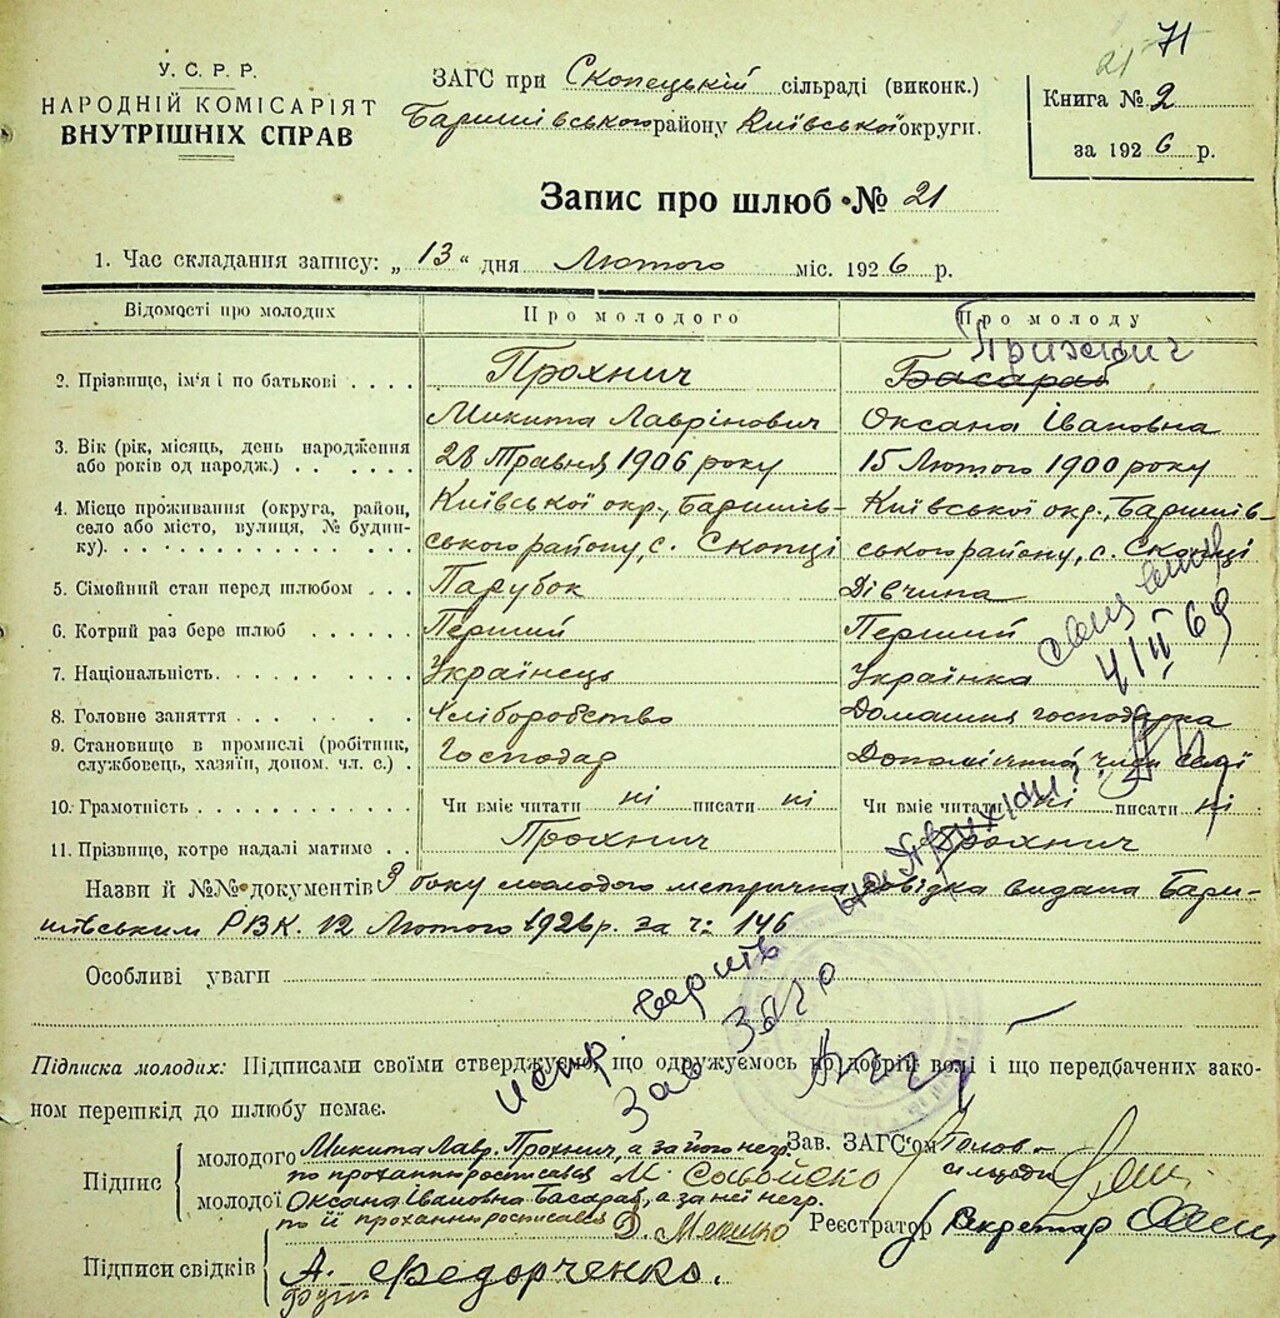 71
21
У. С. Р. Р.
НАРОДНІЙ КОМІСАРІЯТ
ВНУТРІШНІХ СПРАВ
ЗАГС при Скопецькій сільраді (виконк.)
Баришівського району Київської округи.
Книга № 2
за 1926 р.
Запис про шлюб № 21
1. Час складання запису: „13“ дня Лютого міс. 1926 р.
Відомості про молодих
Про молодого
Про молоду
2. Прізвище, ім'я і по батькові . . . .
Прохнич
Басараб
Микита Лаврінович
Оксана Івановна
3. Вік (рік, місяць, день народження
або років од народж.) . . . . . .
28 Травня 1906 року
15 Лютого 1900 року
4. Місце проживання (округа, район,
село або місто, вулиця, № будин-
ку). . . . . . . . . . . . .
Київської окр., Баришів-
ського району, с. Скопці
Київської окр., Баришів-
ського району, с. Скопці
5. Сімойний стан перед шлюбом . . .
Парубок
Дівчина
6. Котрий раз бере шлюб . . . . . .
Перший
Перший
7. Національність. . . . . . . . . .
Українець
Українка
8. Головне заняття . . . . . . . .
Хліборобство
Домашня господарка
9. Становище в промислі (робітник,
службовець, хазяїн, допом. чл. с.) .
Господар
Допомічний член семї
10. Грамотність . . . . . . . . . . .
Чи вміє читати ні писати ні
Чи вміє читати ні писати ні
11. Прізвище, котре надалі матиме . .
Прохнич
Прохнич
Назви й №№ документів З боку молодого метрична довідка видана Бари-
шівським РВК. 12 Лютого 1926 р. за ч: 146
Особливі уваги
4/II 69
Зав Загс
Підписка молодих: Підписами своїми стверджуємо, що одружуємось по добрій волі і що передбачених зако-
ном перешкід до шлюбу немає.
Підпис
молодого Микита Лавр. Прохнич, а за його негр.
по проханню росписався М.
молодої Оксана Івановна Басараб, а за неї негр.
по її проханню росписався Д.
Зав. ЗАГС'ом Голов.
сільради
Реєстратор Секретар
Підписи свідків
А. Федорченко.